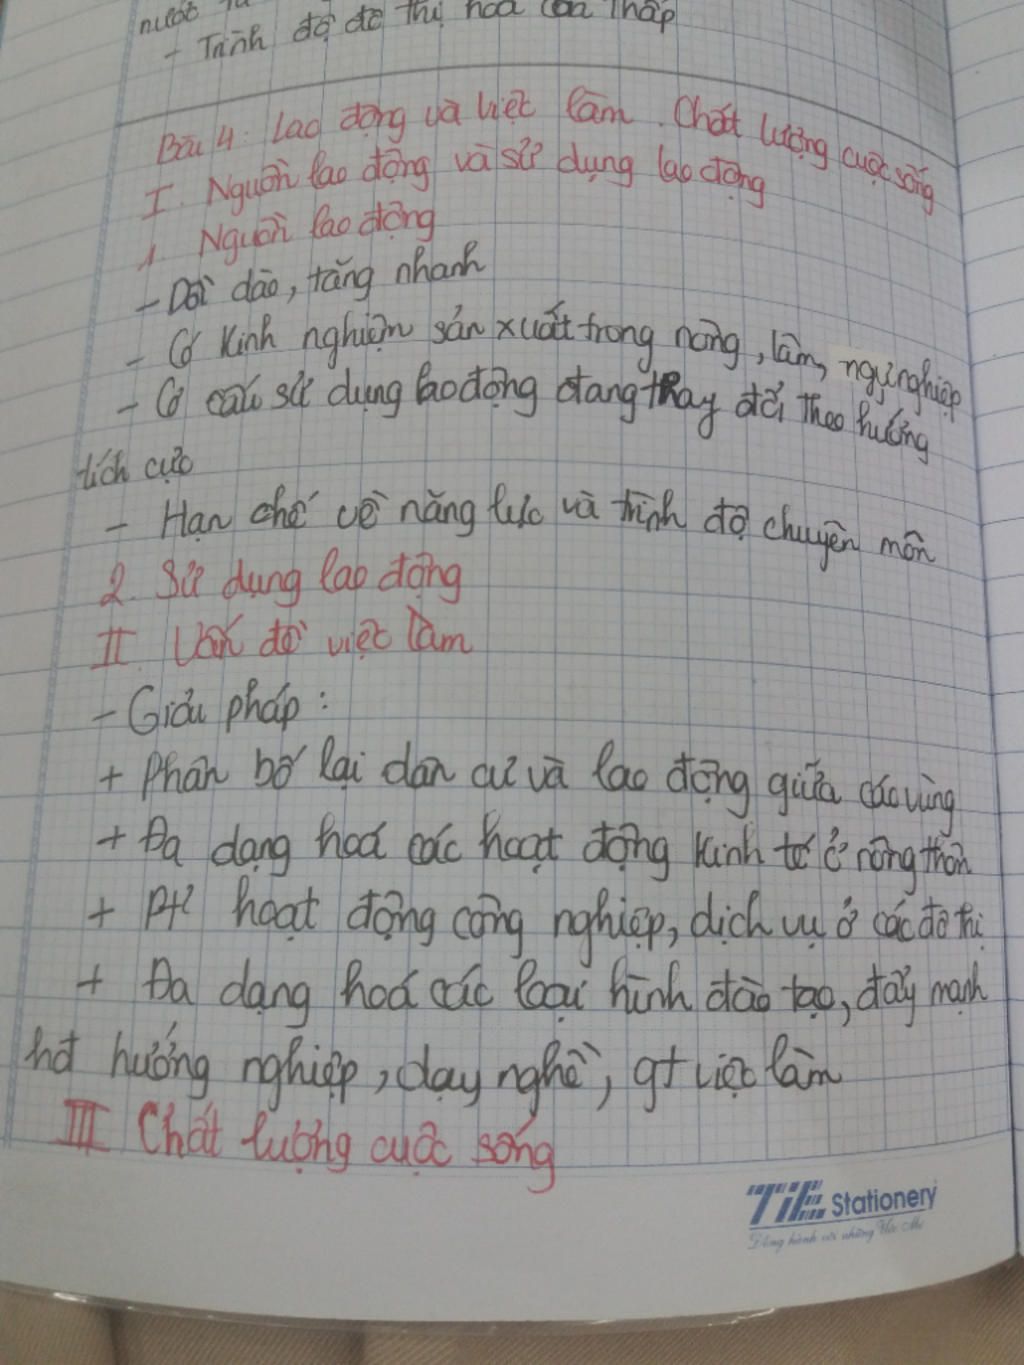 nước
- Trình độ đô thị hoá còn thấp
Bài 4: Lao động và việt làm. Chất lượng cuộc sống
I. Nguồn lao động và sử dụng lao động
1 Nguồn lao động
- Dồi dào, tăng nhanh
- Có kinh nghiệm sản xuất trong nông, lâm, ngư nghiệp
- Cơ cấu sử dụng lao động đang thay đổi theo hướng
tích cực
- Hạn chế về năng lực và trình độ chuyên môn
2. Sử dụng lao động
II. Vấn đề việc làm
- Giải pháp:
+ Phân bố lại dân cư và lao động giữa các vùng
+ Đa dạng hoá các hoạt động kinh tế ở nông thôn
+ Ptr hoạt động công nghiệp, dịch vụ ở các đô thị
+ Đa dạng hoá các loại hình đào tạo, đẩy mạnh
hđ hướng nghiệp, dạy nghề, gt việc làm
III Chất lượng cuộc sống
TiE Stationery
Đồng hành với những Ước Mơ